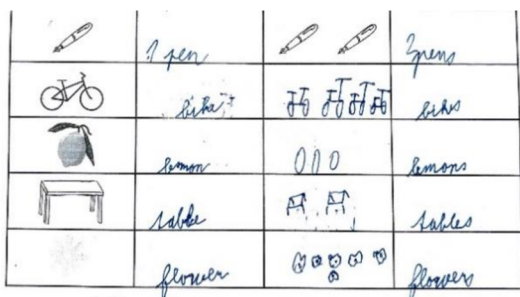 1 pen 2 pens
bike bikes
lemon lemons
table tables
flower flowers